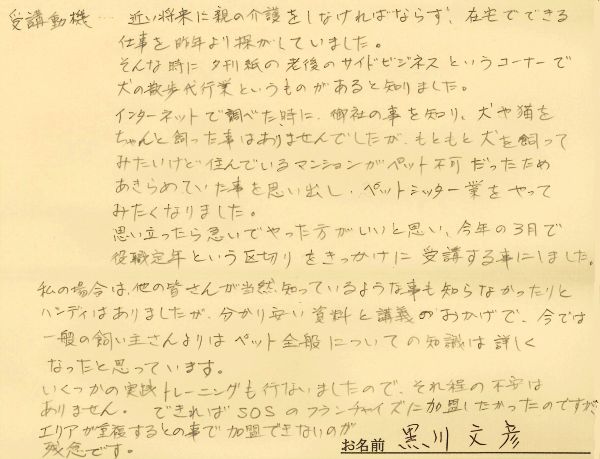 受講動機… 近い将来に親の介護をしなければならず、在宅でできる
仕事を昨年より探がしていました。
そんな時に夕刊紙の老後のサイドビジネスというコーナーで
犬の散歩代行業というものがあると知りました。
インターネットで調べた時に、御社の事を知り、犬や猫を
ちゃんと飼った事はありませんでしたが、もともと犬を飼って
みたいけど住んでいるマンションがペット不可だったため
あきらめていた事を思い出し、ペットシッター業をやって
みたくなりました。
思い立ったら急いでやった方がいいと思い、今年の3月で
役職定年という区切りをきっかけに受講する事にしました。
私の場合は、他の皆さんが当然知っているような事も知らなかったりと
ハンディはありましたが、分かり安い資料と講義のおかげで、今では
一般の飼い主さんよりはペット全般についての知識は詳しく
なったと思っています。
いくつかの実践トレーニングも行ないましたので、それ程の不安は
ありません。できればSOSのフランチャイズに加盟したかったのですが、
エリアが重複するとの事で加盟できないのが
残念です。
お名前 黒川文彦